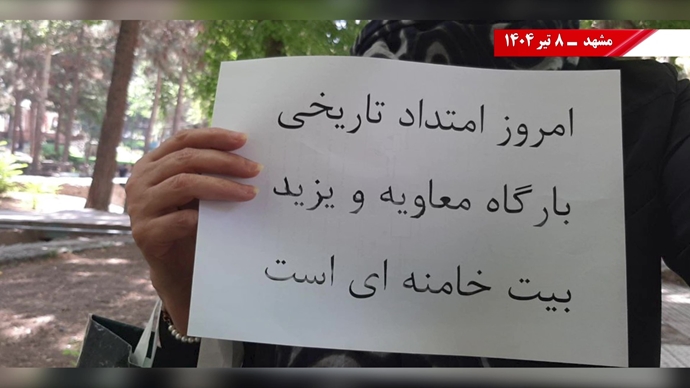 مشهد ــ ۸ تیر ۱۴۰۴
امروز امتداد تاریخی
بارگاه معاویه و یزید
بیت خامنه ای است